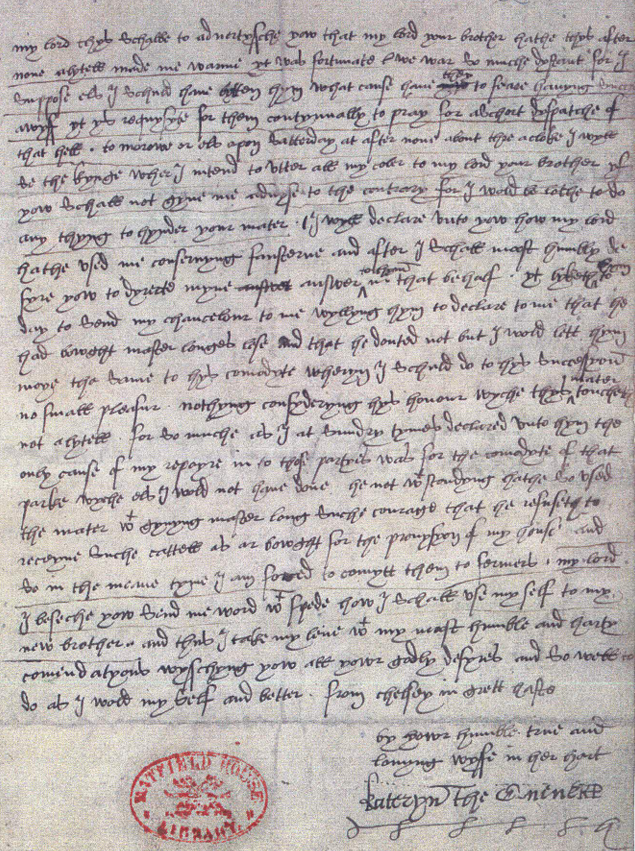 my lord thys schalbe to advertysche yow that my lord your brother hathe thys after
none a lytell made me warme yt was fortunate we war so muche dystant for I
suppose els I schuld have bytten hym what cause have they to feare havyng suche
a wyff yt ys requysyte for them contynually to pray for a schort dyspatche of
that hell to morowe or els apon satterday at after none about thre a cloke I wyll
se the kynge wher I intend to utter all my coler to my lord your brother yf
yow schall not gyve me advyse to the contrary for I wold be lothe to do
any thyng to hynder your mater I wyll declare unto yow how my lord
hathe used me consernyng fansterne and after I schall most humbly de
syre yow to dyrecte myne answer to hym in that behalf yt lyked hym
day to send my chancelour to me wyllyng hym to declare to me that he
had bowght master longes lese and that he douted not but I wold lett hym
moye the same to hys comodyte wheryn I schuld do to hys successyon
no small pleasur nothyng consyderyng hys honour wyche thys mater toucheth
not a lytell for so muche as I at sundry tymes declared unto hym the
only cause of my repayre in to those partyes was for the comodyte of that
parke wyche els I wold not have done he not wtstandyng hathe so used
the mater wt gyvyng master long suche courage that he refuseth to
receyve suche cattell as ar bowght for the provysyon of my house and
so in the meane tyme I am forced to comytt them to fermers my lord
I beseche yow send me word wt spede how I schall use my self to my
new brother and thus I take my leve wt my most humble and harty
comendatyons wyschyng yow all your godly desyres and so well to
do as I wold my self and better from chelsey in grett haste
by your humble true and
lovyng wyfe in her hart
Kateryn the Quene KP
HATFIELD HOUSE
LIBRARY